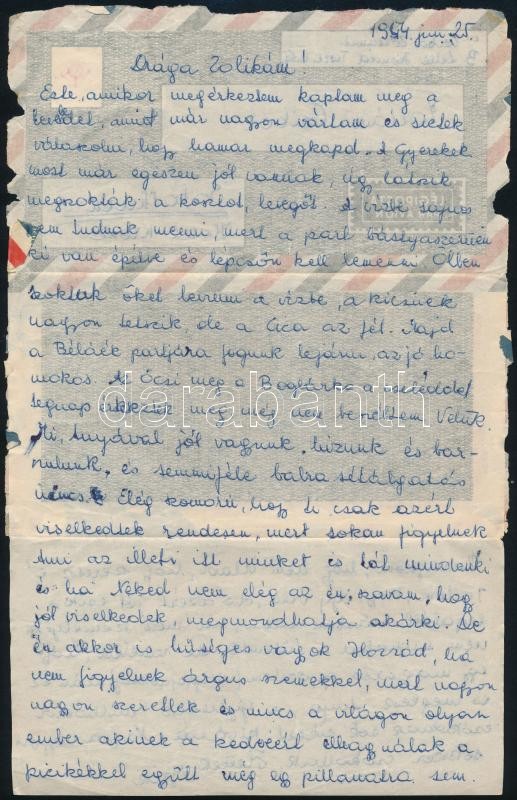 1954. jun. 25.
Drága Zolikám!
Este, amikor megérkeztem kaptam meg a
leveledet, amit már nagyon vártam és sietek
válaszolni, hogy hamar megkapd. A Gyerekek
most már egészen jól vannak, úgy látszik
megszokták a kosztot, levegőt. A vízbe sajnos
nem tudnak menni, mert a part bástyaszerűen
ki van építve és lépcsőn kell lemenni Ölben
szoktuk őket levinni a vízbe, a kicsinek
nagyon tetszik, de a Cica az fél. Majd
a Béláék partjára fogunk lejárni, az jó ho-
mokos. Az Öcsi meg a Boglárka a
tegnap érkeztek meg még nem beszéltem Velük.
Mi, Anyával jól vagyunk, hízunk és bar-
nulunk, és semmiféle balra sétálgatás
nincs. Elég komoru, hogy ti csak azért
viselkedtek rendesen, mert sokan figyelnek
Ami az illeti itt minket is lát mindenki
és ha Neked nem elég az én szavam, hogy
jól viselkedek, megmondhatja akárki. De
én akkor is hűséges vagyok Hozzád, ha
nem figyelnek árgus szemekkel, mert nagyon
nagyon szeretlek és nincs a világon olyan
ember akinek a kedvéért elhagynálak a
picikékkel együtt még egy pillanatra sem.
darabanth